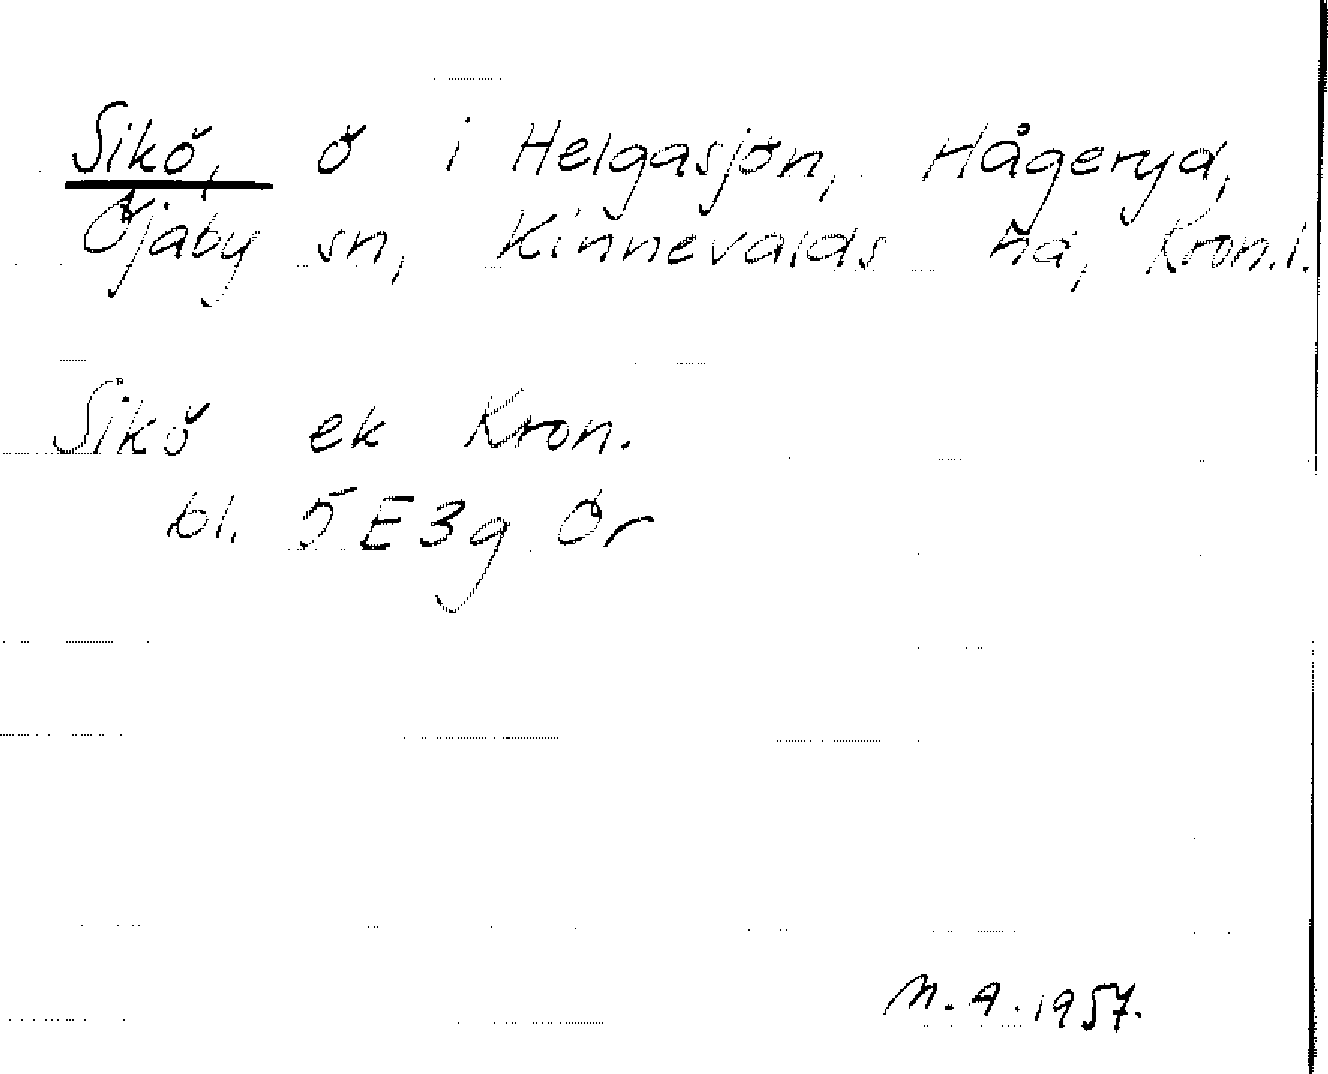 Sikö, ö i Helgasjön, Hågeryd,
Öjaby sn, Kinnevalds hd, Kron.l.
Sikö ek Kron.
bl. 5E3g Ör
N.A. 1957.